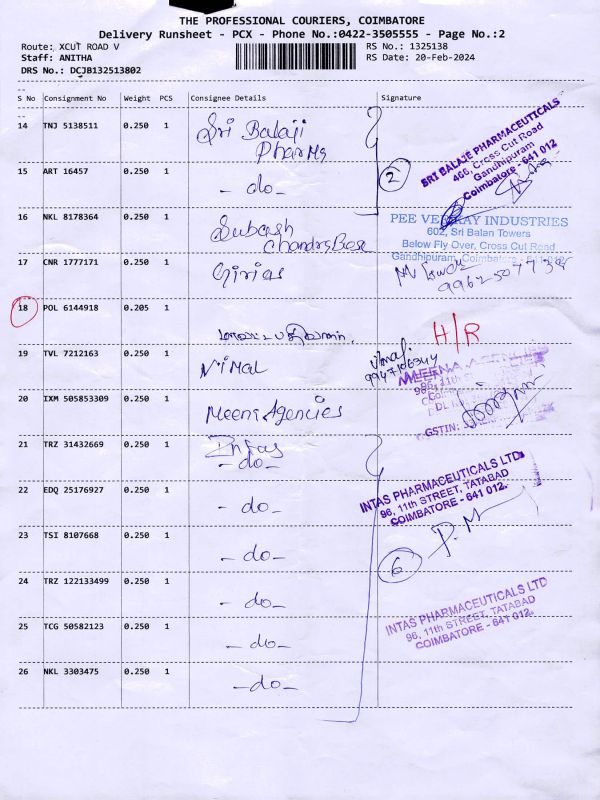 THE PROFESSIONAL COURIERS, COIMBATORE
Delivery Runsheet - PCX - Phone No.:0422-3505555 - Page No.:2
Route: XCUT ROAD V RS No.: 1325138
Staff: ANITHA RS Date: 20-Feb-2024
DRS No.: DCJB132513802
S No Consignment No Weight PCS Consignee Details Signature
14 TNJ 5138511 0.250 1 Sri Balaji
Pharma
SRI BALAJE PHARMACEUTICALS
466, Cross Cut Road
Gandhipuram
Coimbatore - 641 012
2
15 ART 16457 0.250 1 - do -
16 NKL 8178364 0.250 1 Subash
Chandra Bose
PEE VEE KAY INDUSTRIES
602, Sri Balan Towers
Below Fly Over, Cross Cut Road
Gandhipuram, Coimbatore - 641 012
17 CNR 1777171 0.250 1 Girias
18 POL 6144918 0.205 1
H/R
19 TVL 7212163 0.250 1 Nirmal
20 IXM 505853309 0.250 1 Meena Agencies
MEENA AGENCIES
GSTIN:
21 TRZ 31432669 0.250 1 Intas
- do -
INTAS PHARMACEUTICALS LTD
96, 11th STREET, TATABAD
COIMBATORE - 641 012.
22 EDQ 25176927 0.250 1 - do -
P. M
23 TSI 8107668 0.250 1 - do -
6
24 TRZ 122133499 0.250 1 - do -
INTAS PHARMACEUTICALS LTD
96, 11th STREET, TATABAD
COIMBATORE - 641 012.
25 TCG 50582123 0.250 1 - do -
26 NKL 3303475 0.250 1 - do -